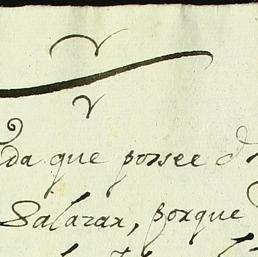 da que possee d
Salazar, porque